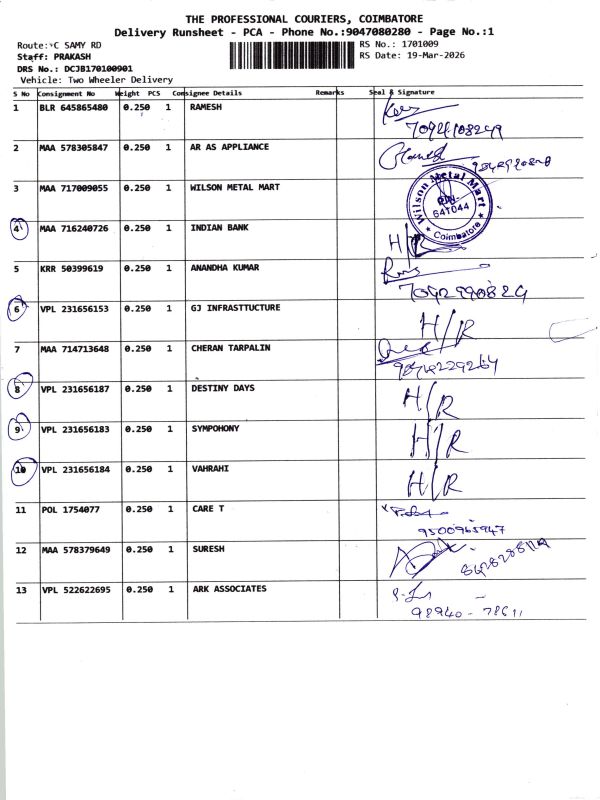 THE PROFESSIONAL COURIERS, COIMBATORE
Delivery Runsheet - PCA - Phone No.:9047080280 - Page No.:1
Route: C SAMY RD
RS No.: 1701009
Staff: PRAKASH
RS Date: 19-Mar-2026
DRS No.: DCJB170100901
Vehicle: Two Wheeler Delivery
S No Consignment No Weight PCS Consignee Details Remarks Seal & Signature
1 BLR 645865480 0.250 1 RAMESH
2 MAA 578305847 0.250 1 AR AS APPLIANCE
3 MAA 717009055 0.250 1 WILSON METAL MART Wilson Metal Mart PIN 641044 Coimbatore
4 MAA 716240726 0.250 1 INDIAN BANK H/R
5 KRR 50399619 0.250 1 ANANDHA KUMAR
6 VPL 231656153 0.250 1 GJ INFRASTTUCTURE H/R
7 MAA 714713648 0.250 1 CHERAN TARPALIN
8 VPL 231656187 0.250 1 DESTINY DAYS H/R
9 VPL 231656183 0.250 1 SYMPOHONY H/R
10 VPL 231656184 0.250 1 VAHRAHI H/R
11 POL 1754077 0.250 1 CARE T
9500965947
12 MAA 578379649 0.250 1 SURESH
13 VPL 522622695 0.250 1 ARK ASSOCIATES
98940 - 78611